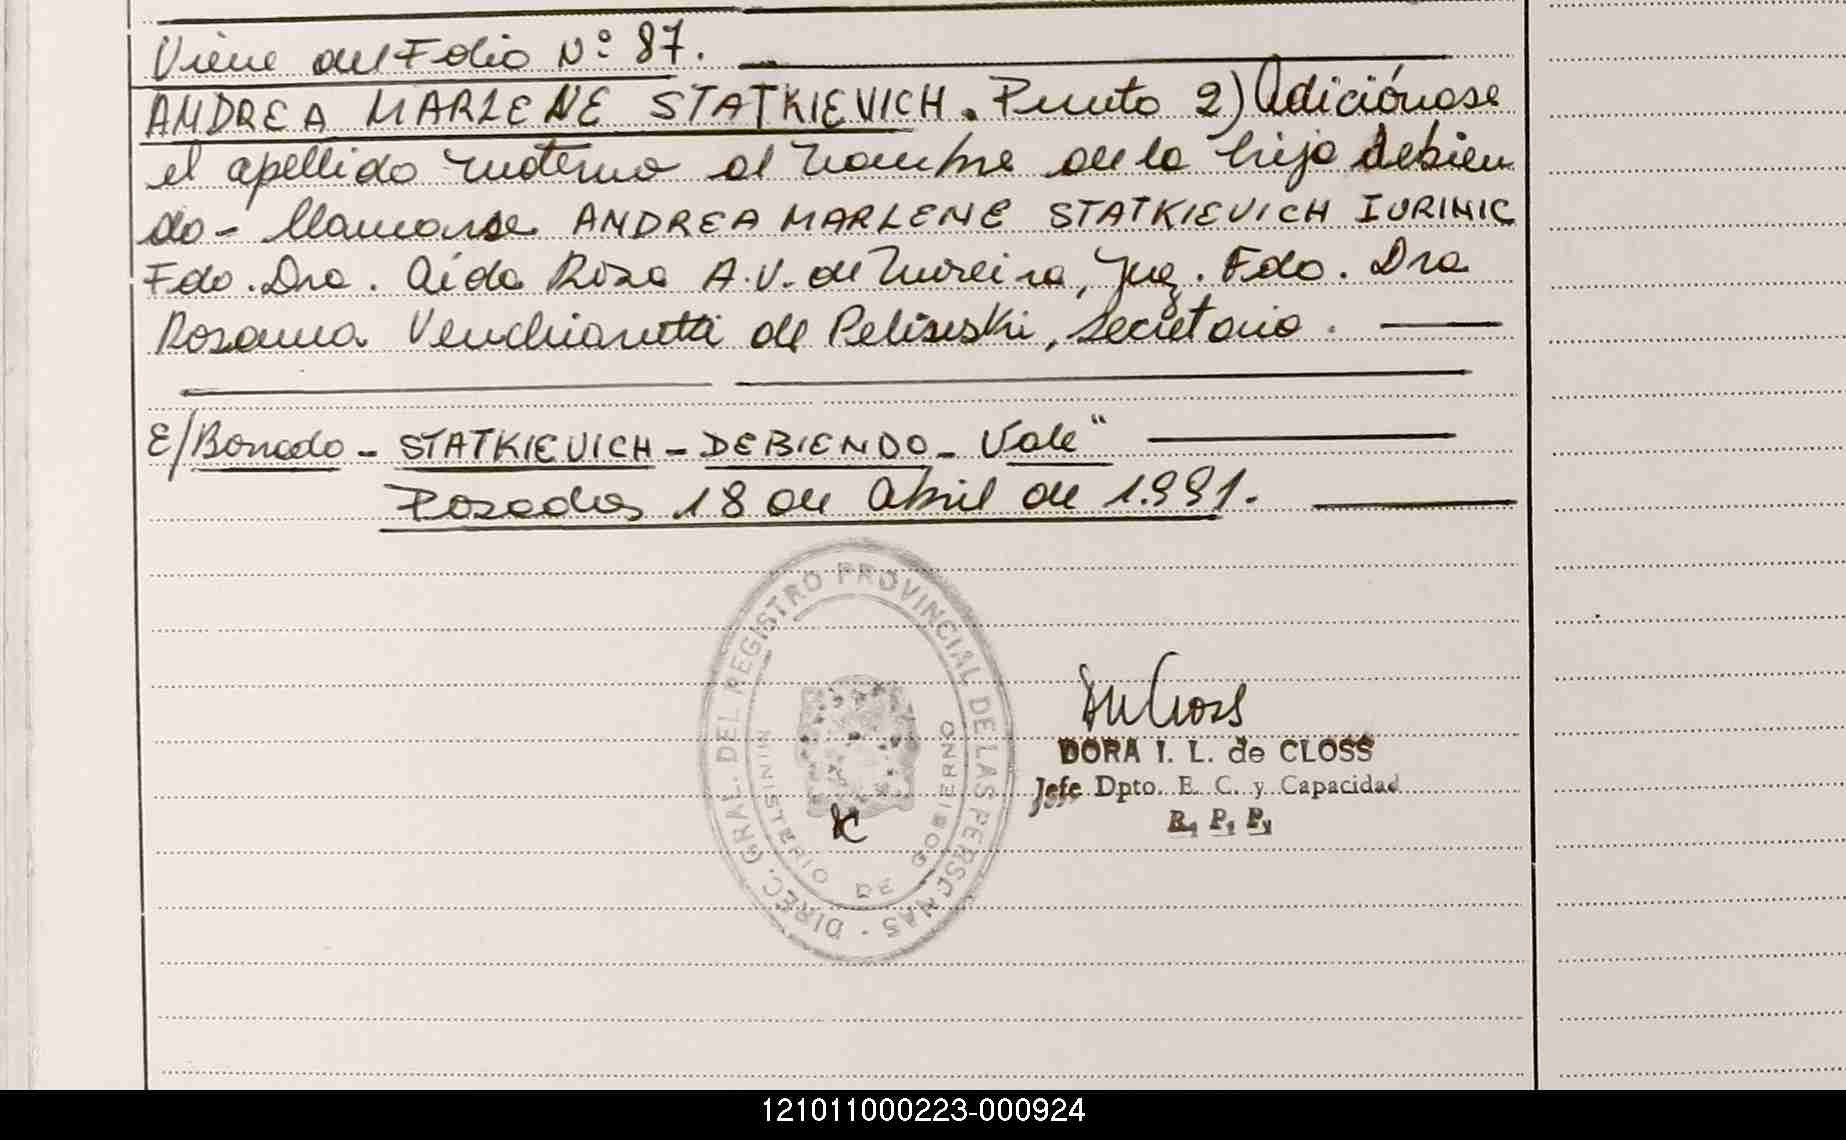 Viene del Folio Nº 87.
ANDREA MARLENE STATKIEVICH. Punto 2) Adiciónase
el apellido materno al nombre de la hija debien
do- llamarse ANDREA MARLENE STATKIEVICH IURINIC
Fdo. Dra. Aída Rosa A.V. de Mureira, Juez. Fdo. Dra
Rosanna Venchiarutti de Peliseski, Secretaria.
E/Borrado - STATKIEVICH - DEBIENDO - Vale"
Posadas 18 de Abril de 1.991.
DIREC. GRAL. DEL REGISTRO PROVINCIAL DE LAS PERSONAS -
MINISTERIO DE GOBIERNO
DORA I. L. de CLOSS
Jefe Dpto. E. C. y Capacidad
R. P. P.
121011000223-000924